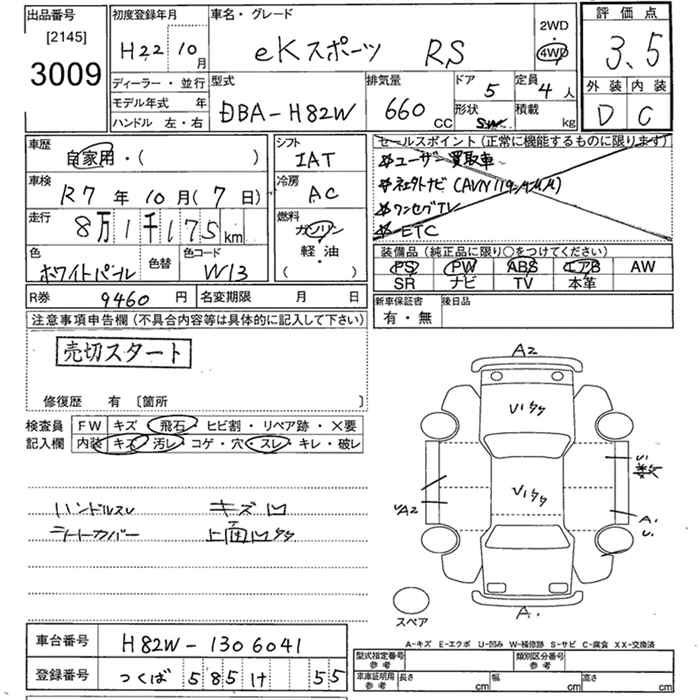 出品番号
[2145]
3009
初度登録年月
H22 10月
車名・グレード
eKスポーツ RS
2WD
4WD
評価点
3.5
外装 内装
D C
ディーラー・並行
モデル年式 年
ハンドル 左・右
型式
DBA-H82W
排気量
660 CC
ドア 5
形状 SW
定員 4人
積載 kg
車歴
自家用・( )
車検
R7年10月(7日)
走行
8万1千175km
色
ホワイトパール
色替
色コード
W13
シフト
IAT
冷房
AC
燃料
ガソリン
軽油
( )
セールスポイント(正常に機能するものに限ります)
ユーザー買取車
ワンセグTV
ETC
装備品(純正品に限り○をつけてください)
PS PW ABS エアB AW
SR ナビ TV 本革
R券 9460円
名変期限 月 日
新車保証書
有・無
後日品
注意事項申告欄(不具合内容等は具体的に記入して下さい)
売切スタート
修復歴 有 [箇所 ]
検査員記入欄
FW キズ 飛石・ヒビ割・リペア跡・×要
内装 キズ 汚レ・コゲ・穴・スレ・キレ・破レ
ハンドルスレ キズ凹
シートカバー 上面凹タタ
A2
Vlタタ
Vlタタ
A.
スペア
A-キズ E-エクボ U-凹み W-補修跡 S-サビ C-腐食 XX-交換済
車台番号 H82W-1306041
登録番号 つくば 585 け 55
型式指定番号 参考
類別区分番号 参考
車庫証明用 参考
長さ cm
幅 cm
高さ cm